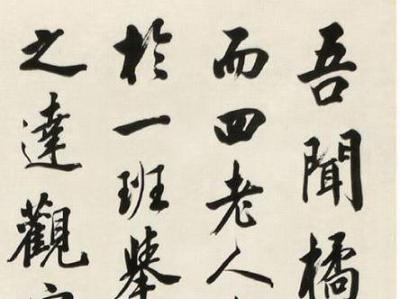 吾聞橘
而四老人
於一班舉
之達觀